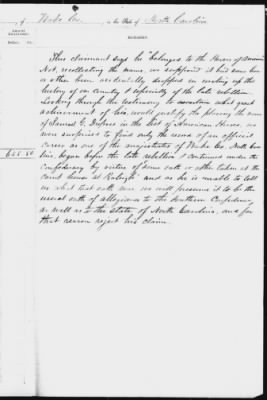 of Wake Co. in the State of North Carolina
REMARKS.
Dollars. Cts.
This claimant says he "belongs to the Heroes of America"
Not recollecting the name, we supposed it had some how
or other been accidentally dropped in making up the
history of our country & especially of the late rebellion.
Looking through the testimony to ascertain what great
achievement of his, would justify the placing the name
of Samuel G. Dupree in the list of American Heroes, we
were surprised to find only the record of an official
career as one of the magistrates of Wake Co. North Caro-
lina, begun before the late rebellion & continued under the
Confederacy by virtue of some oath or other taken at the
Court House at Raleigh and as he is unable to tell
us what that oath was we will presume it to be the
usual oath of allegiance to the Southern Confederacy
as well as to the State of North Carolina, and for
that reason reject his claim.